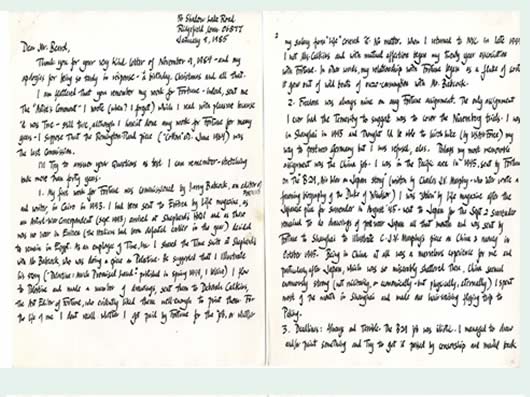 76 Shadow Lake Road
Ridgefield, Conn 06877
January 8, 1985
Dear Mr. Beard,
Thank you for your very kind letter of November 9, 1984 - and my
apologies for being so tardy in response - a birthday, Christmas and all that.
I am flattered that you remember my work for Fortune - indeed, sent me
The "Artist's Comment" I wrote (when? I forget) which I read with pleasure because
it was True - still True, although I haven't done any work for Fortune for many
years - I suppose that the Remington-Rand piece ( June 1969) was
the last commission.
I'll Try to answer your Questions as best I can remember - stretching
back more than forty years.
1. My first work for Fortune was commissioned by Babcock, an editor
and writer, in Cairo in 1943. I had been sent to Eritrea by Life magazine, as
an Artist-War Correspondent (Sept. 1943) arrived at Shepherds Hotel and as there
was no war in Eritrea (the Italians had been defeated earlier in the year) decided
to remain in Egypt. As an employee of Time, Inc. I shared the Time suite at Shepherds
with Mr Babcock, who was doing a piece on Palestine. He suggested that I illustrate
his story ("Palestine: Much Promised Land" published in Spring 1944, I think) I flew
to Palestine and made a number of drawings, sent them to Deborah Calkins,
the Art Editor of Fortune, who evidently liked them well enough to print them. For
the life of me I don't recall whether I got paid by Fortune for the job, or whether
2
my salary from "Life" covered it. No matter. When I returned to NYC in late 1944
I met Ms. Calkins and with mutual affection began my Twenty year association
with Fortune. In other words, my relationship with Fortune began as a fluke of sorts
it grew out of wild bouts of over-consumption with Mr. Babcock.
2. Freedom was always mine on any Fortune assignment. The only assignment
I ever had the Temerity to suggest was to cover the Nuremberg trials. I was
in Shanghai in 1945 and Thought I'd be able to hitch hike (by US Air Force) my
way to postwar Germany but I was refused, alas. Perhaps my most memorable
assignment was the China job. I was in the Pacific area in 1945 sent by Fortune
on the B.29, to do a Japan story (written by Charles J.V. Murphy - who later wrote a
fawning biography of the Duke of Windsor) I was "taken" by Life magazine after the
Japanese plea for surrender in August '45 - went to Japan for the Sept 2 Surrender
remained to do drawings of postwar Japan all that month and was sent by
Fortune to Shanghai to illustrate C.J.V. Murphy's piece on China's money in
October 1945. Being in China at all was a marvelous experience for me and
particularly after Japan, which was so miserably shattered then, China seemed
enormously strong (not militarily, or economically - but physically, eternally) I spent
most of the month in Shanghai and made one hair-raising flying trip to
Peking.
3. Deadlines: Always and Terrible. The B.29 job was idiotic. I managed to draw
and/or paint something and Try to get it passed by censorship and mailed back